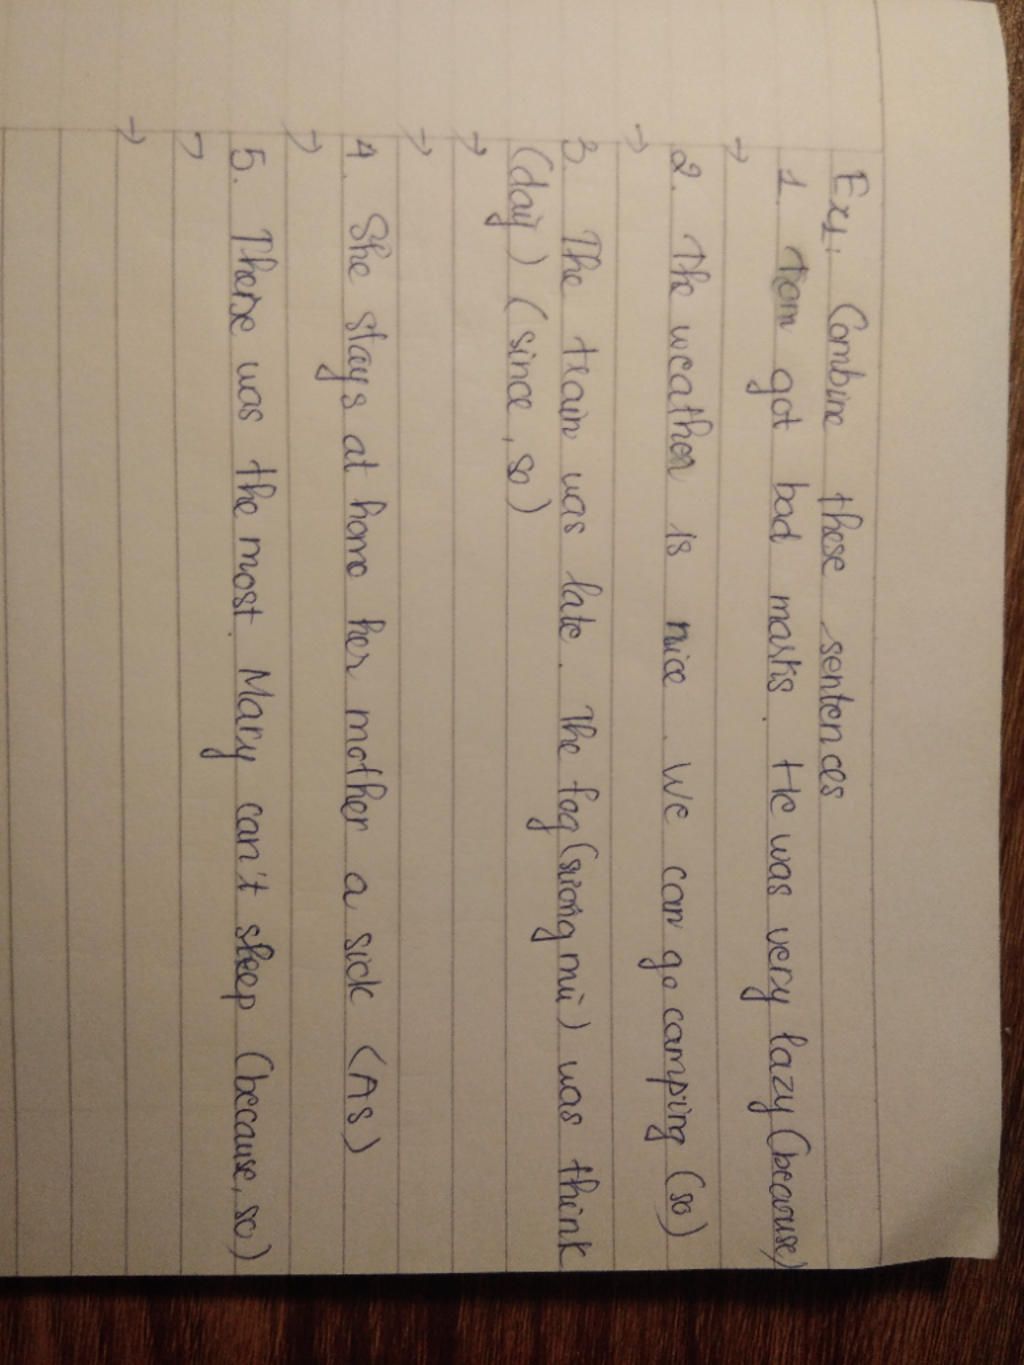 Ex1: Combine these sentences
1. Tom got bad marks. He was very lazy (because)
→
2. The weather is nice. We can go camping (so)
→
3. The train was late. The fog (sương mù) was think
(dày) (since, so)
→
→
4. She stays at home her mother a sick (As)
→
5. There was the most. Mary can't sleep (because, so)
→
→